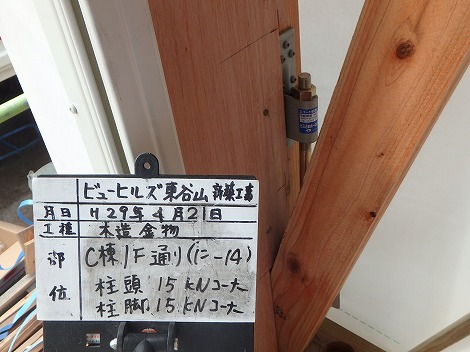 ビューヒルズ東谷山 新築工事
月日 H29年4月21日
工種 木造金物
部位 C棟1F通り(に-14)
柱頭 15kNコーナー
柱脚 15kNコーナー